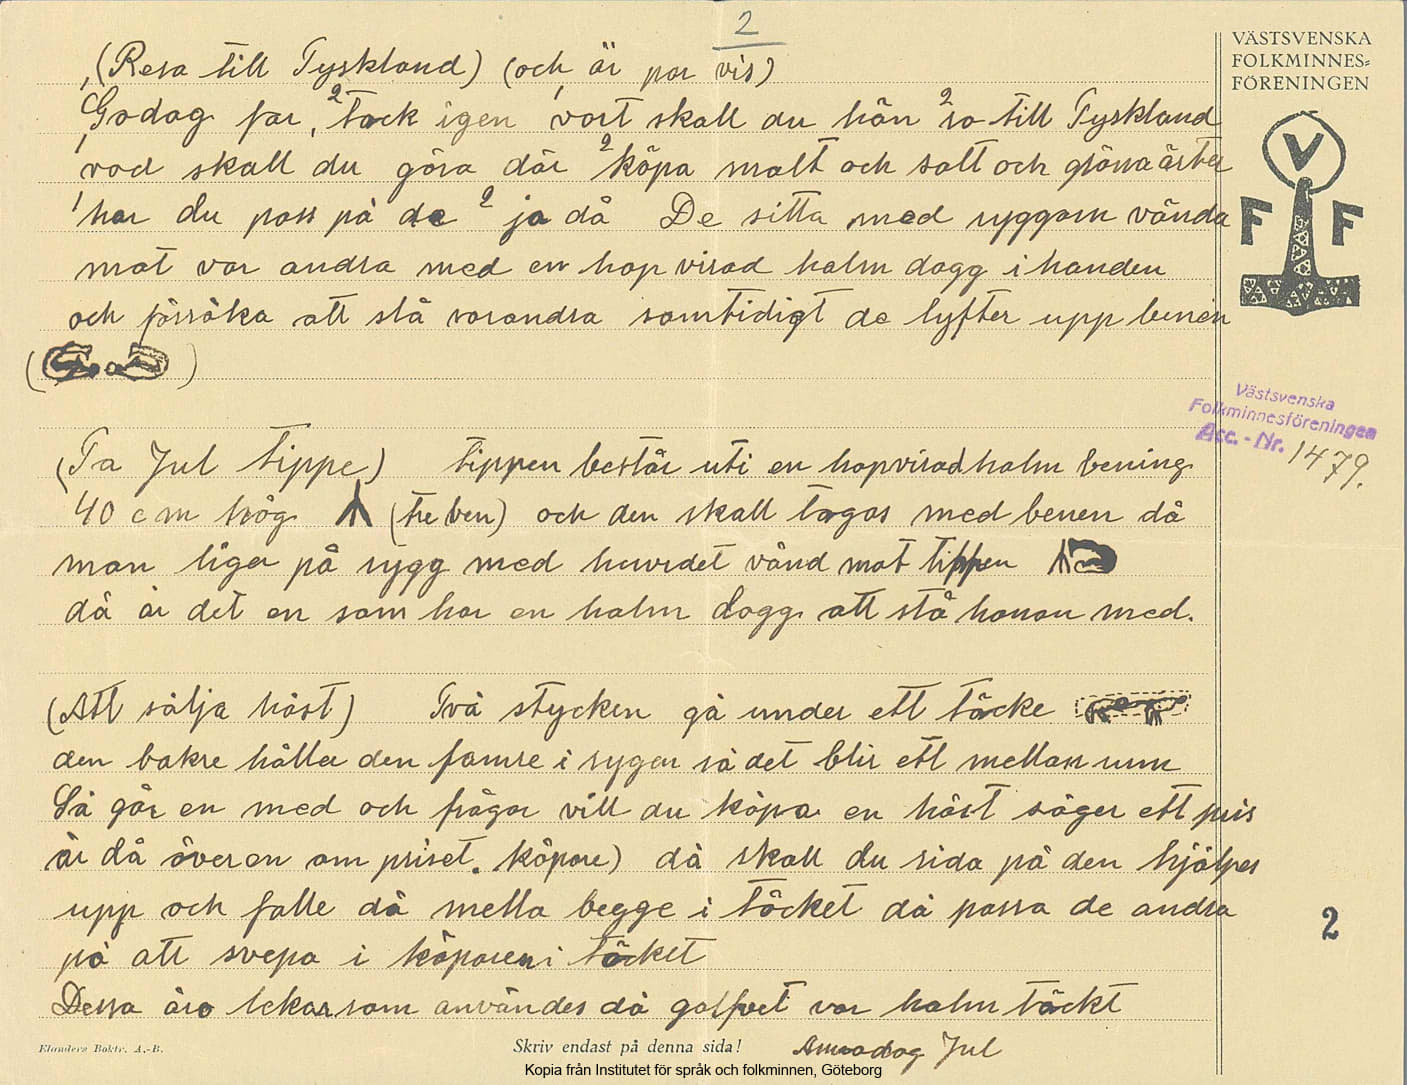 2
VÄSTSVENSKA
FOLKMINNES-
FÖRENINGEN
V
F F
(Resa till Tyskland) (och är par vis)
1 Godag far, 2 tack igen 1 vart skall du hän 2 ro till Tyskland
1 vad skall du göra där 2 köpa malt och salt och gröna ärter
1 har du pass på de 2 ja då De sitta med ryggarn vända
mot var andra med en hop virad halm dagg i handen
och försöka att slå varandra samtidigt de lyfter upp benen
( )
Västsvenska
Folkminnesföreningen
Acc.-Nr. 1479.
(Ta Jul tippe) tippen består uti en hopvirad halm bening
40 cm hög (tre ben) och den skall tagas med benen då
man liger på rygg med huvudet vänd mot tippen
då är det en som har en halm dagg att slå honon med.
(Att sälja häst) Två stycken gå under ett täcke
den bakre håller den famre i rygen så det blir ett mellan rum
Så går en med och frågar vill du köpa en häst säger ett pris
är då överen om priset. köpare) då skall du rida på den hjälpes
upp och falle då mella begge i täcket då passa de andra
på att svepa i köparen i täcket
2
Dessa äro lekar som användes då golfvet var halm täckt
Klanders Boktr. A.-B.
Skriv endast på denna sida!
Annadag Jul
Kopia från Institutet för språk och folkminnen, Göteborg